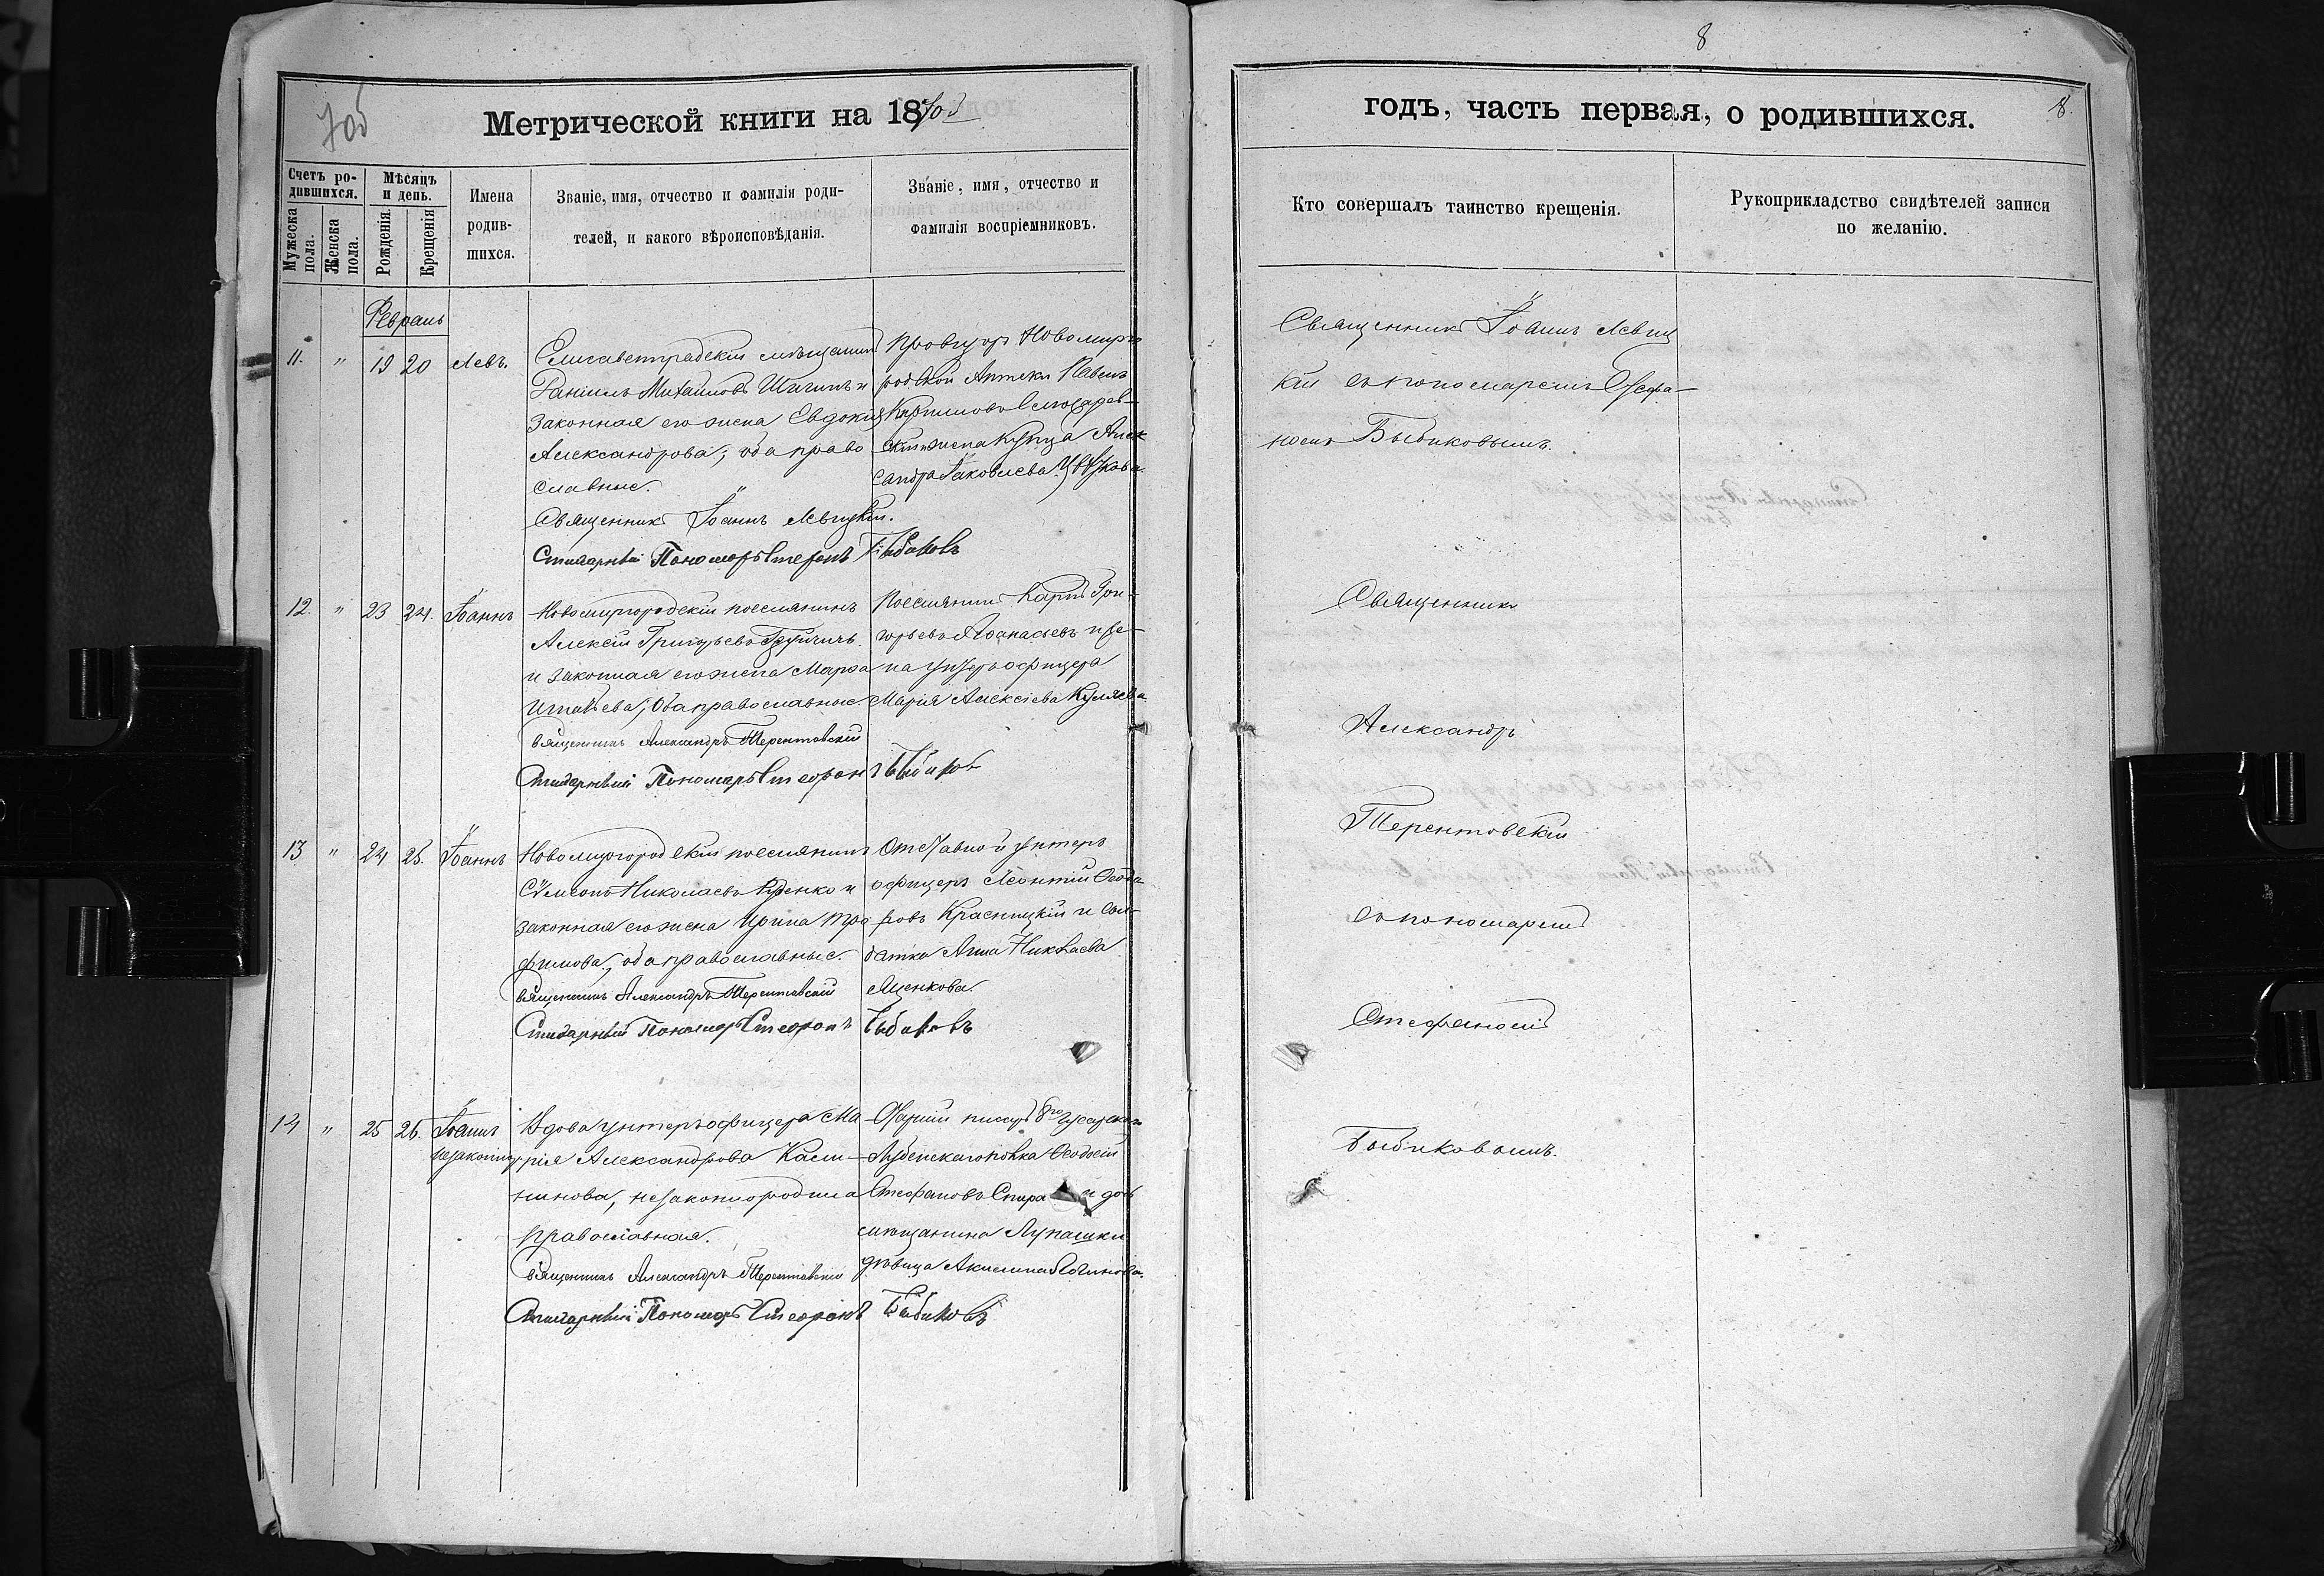 8
Метрической книги на 1870й
годъ, часть первая, о родившихся.
8.
Счетъ ро-
дившихся.
Мужеска пола.
Женска пола.
Мѣсяцъ
и день.
Рожденія.
Крещенія
Имена
родив-
шихся.
Званіе, имя, отчество и фамилія роди-
телей, и какого вѣроисповѣданія.
Званіе, имя, отчество и
фамилія воспріемниковъ.
Кто совершалъ таинство крещенія.
Рукоприкладство свидѣтелей записи
по желанію.
Февраль
11. " 19 20 Левъ.
Елисаветградскій мѣщанинъ
Даніилъ Михаиловъ и
законная его жена Евдокія
Александрова; оба право
славные.
Священникъ Іоаннъ Левицкій.
Стихарный Пономарь Стефанъ Быбиковъ
Провизоръ Новомирго
родской Аптеки Павелъ
жена купца Алек
сандра Іаковлева
Священникъ Іоаннъ Левиц
кій съ пономаремъ Стефа-
номъ Быбиковымъ.
12. " 23 24. Іоаннъ
Новомиргородскій поселянинъ
Алексій Григорьевъ
и законная его жена Марѳа
оба православные.
Священникъ Александръ Терентовскій
Стихарный Пономарь Стефанъ Быбиковъ
Поселянинъ Карпъ Гри-
горьевъ Аѳанасьевъ и же-
на унтеръ офицера
Марія Алексіева
Священникъ
Александръ
Терентовскій
съ пономаремъ
Стефаномъ
Быбиковымъ.
13 " 24 25. Іоаннъ
Новомиргородскій поселянинъ
Сѵмеонъ Николаевъ Руденко и
законная его жена Ирина Тро
фимова, оба православные.
Священникъ Александръ Терентовскій
Стихарный Пономарь Стефанъ Быбиковъ
Отставной унтеръ
офицеръ Леонтій Ѳеодо
ровъ Красницкій и сол-
датка Анна Николаева
Яценкова.
14 " 25 26. Іоаннъ
незаконнор
Вдова унтеръ офицера Ма
рія Александрова Кали-
нинова, незаконнородила
православная.
Священникъ Александръ Терентовскій
Стихарный Пономарь Стефанъ Быбиковъ
Старшій писарь 8го гусарскаго
Лубенскаго полка Ѳеодосій
Стефановъ и дочь
мѣщанина Лупашки
дѣвица Акилина